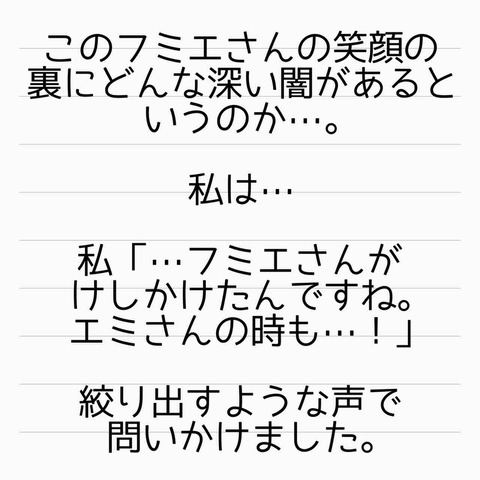 このフミエさんの笑顔の
裏にどんな深い闇があると
いうのか…。
私は…
私「…フミエさんが
けしかけたんですね。
エミさんの時も…！」
絞り出すような声で
問いかけました。